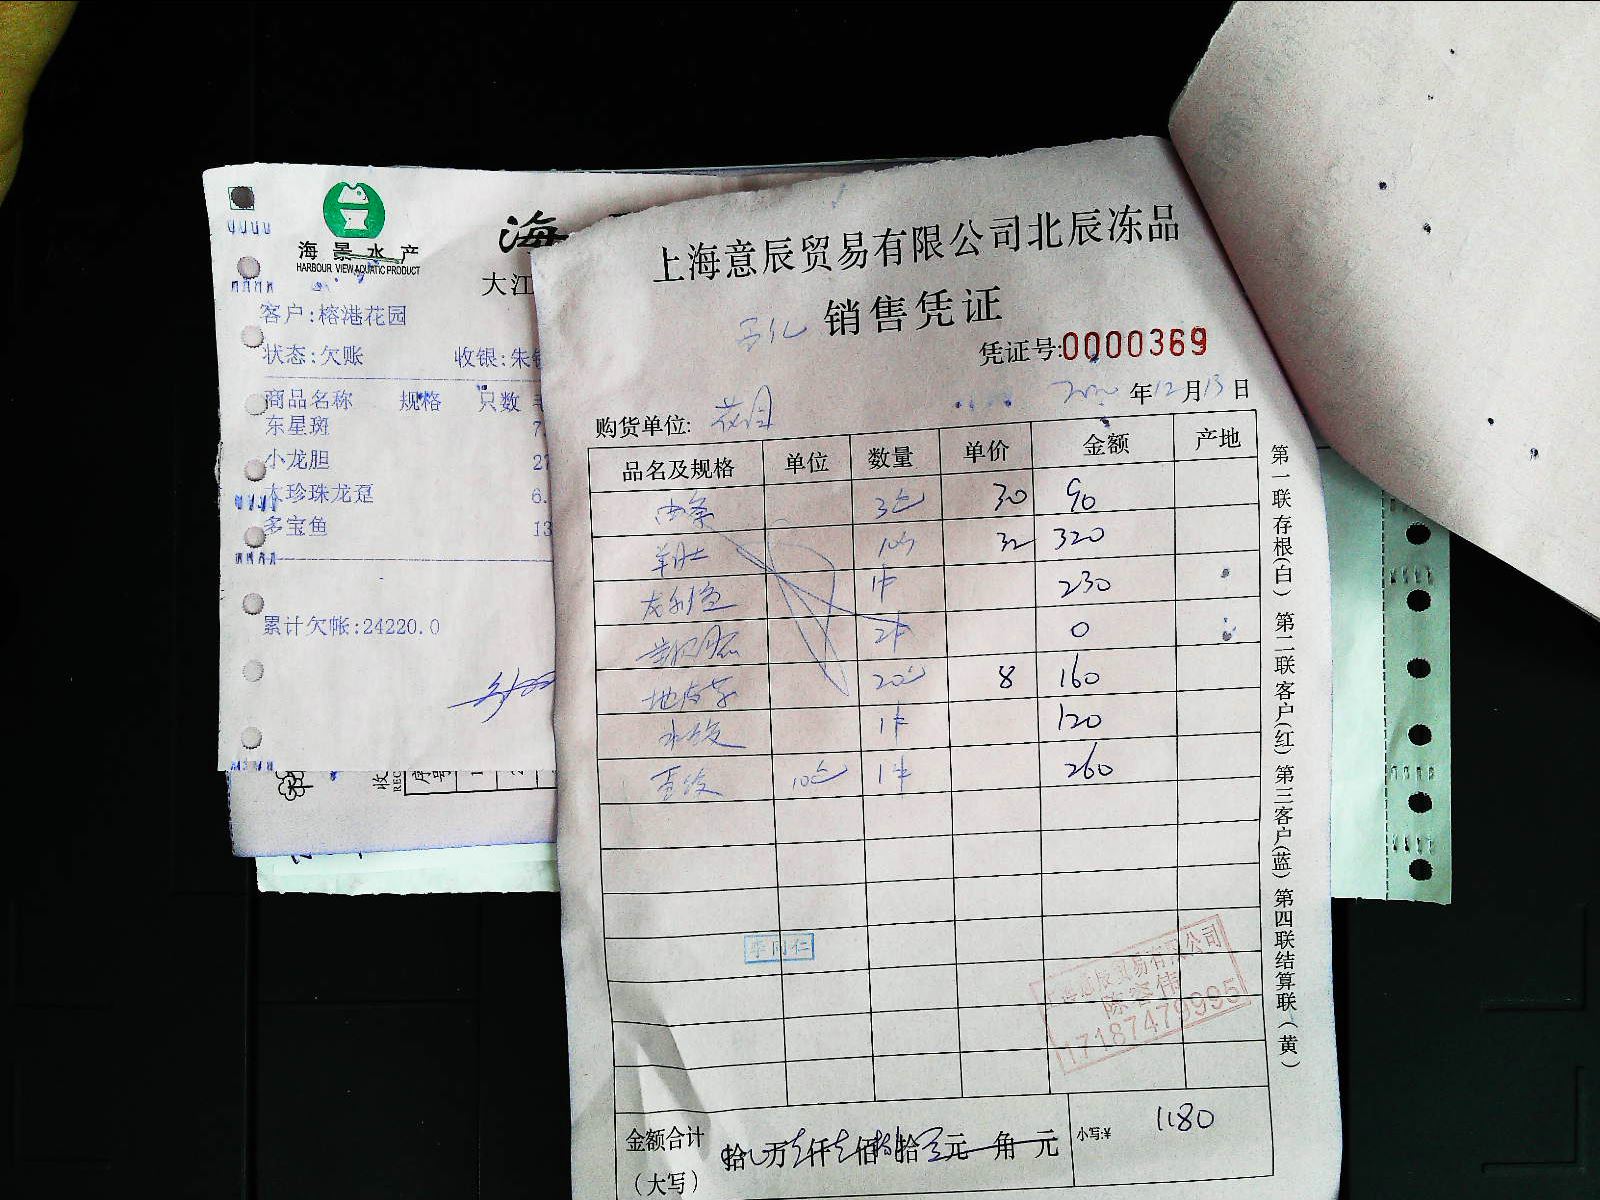 海景水产
HARBOUR VIEW AQUATIC PRODUCT
海
大江
客户:榕港花园
状态:欠账 收银:朱
商品名称 规格 只数
东星斑 7.
小龙胆 27
大珍珠龙趸 6.
多宝鱼 13
累计欠帐:24220.0
上海意辰贸易有限公司北辰冻品
销售凭证
凭证号:0000369
年12月13日
购货单位: 花园
品名及规格 单位 数量 单价 金额 产地
3包 30 90
羊肚 10 32 320
龙利鱼 1件 230
2件 0
20包 8 160
1件 120
10包 1件 260
金额合计
(大写)
拾 万 仟 佰 拾 元 角 元
小写:¥ 1180
第一联存根(白) 第二联客户(红) 第三客户(蓝) 第四联结算联(黄)
贸易有限公司
陈容伟
17187479995